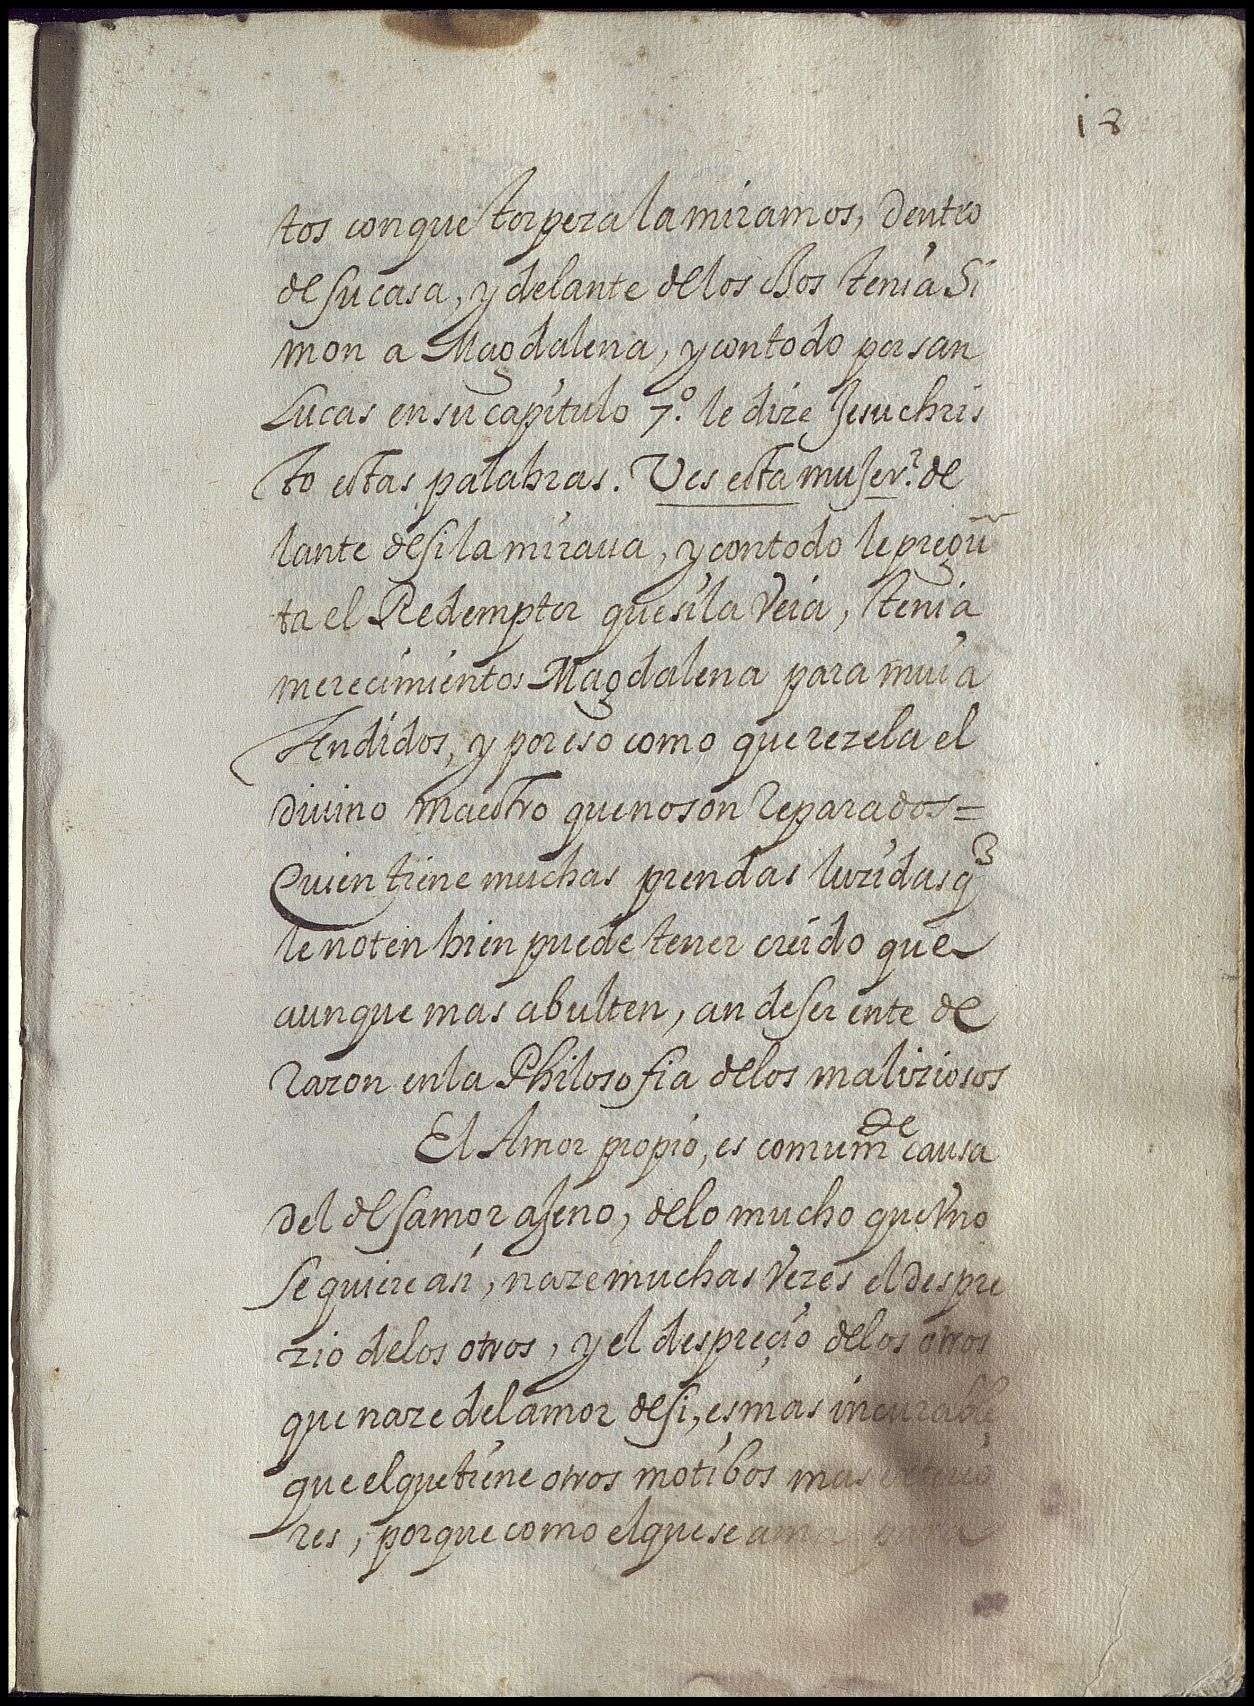 18
tos con que torpeza la miramos, dentro
de su casa, y delante de los ojos tenía Si
mon a Magdalena, y con todo por san
Lucas en su capítulo 7.º le dize Jesuchris
to estas palabras. Ves esta mujer? de
lante de si la miraua, y con todo le pregũ
ta el Redemptor que si la veía, tenia
merecimientos Magdalena para mui a
tendidos, y por eso como que rezela el
diuino maestro que no son reparados =
Quien tiene muchas prendas luzidas q
le noten bien puede tener creido que
aunque mas abulten, an de ser ente de
razon en la Philosofia de los maliziosos
El Amor propio, es comumde causa
del desamor ajeno, de lo mucho que vno
se quiere asi, naze muchas vezes el despre
zio de los otros, y el despreçio de los otros
que naze del amor de si, es mas incurable
que el que tiene otros motibos mas
res, porque como el que se am